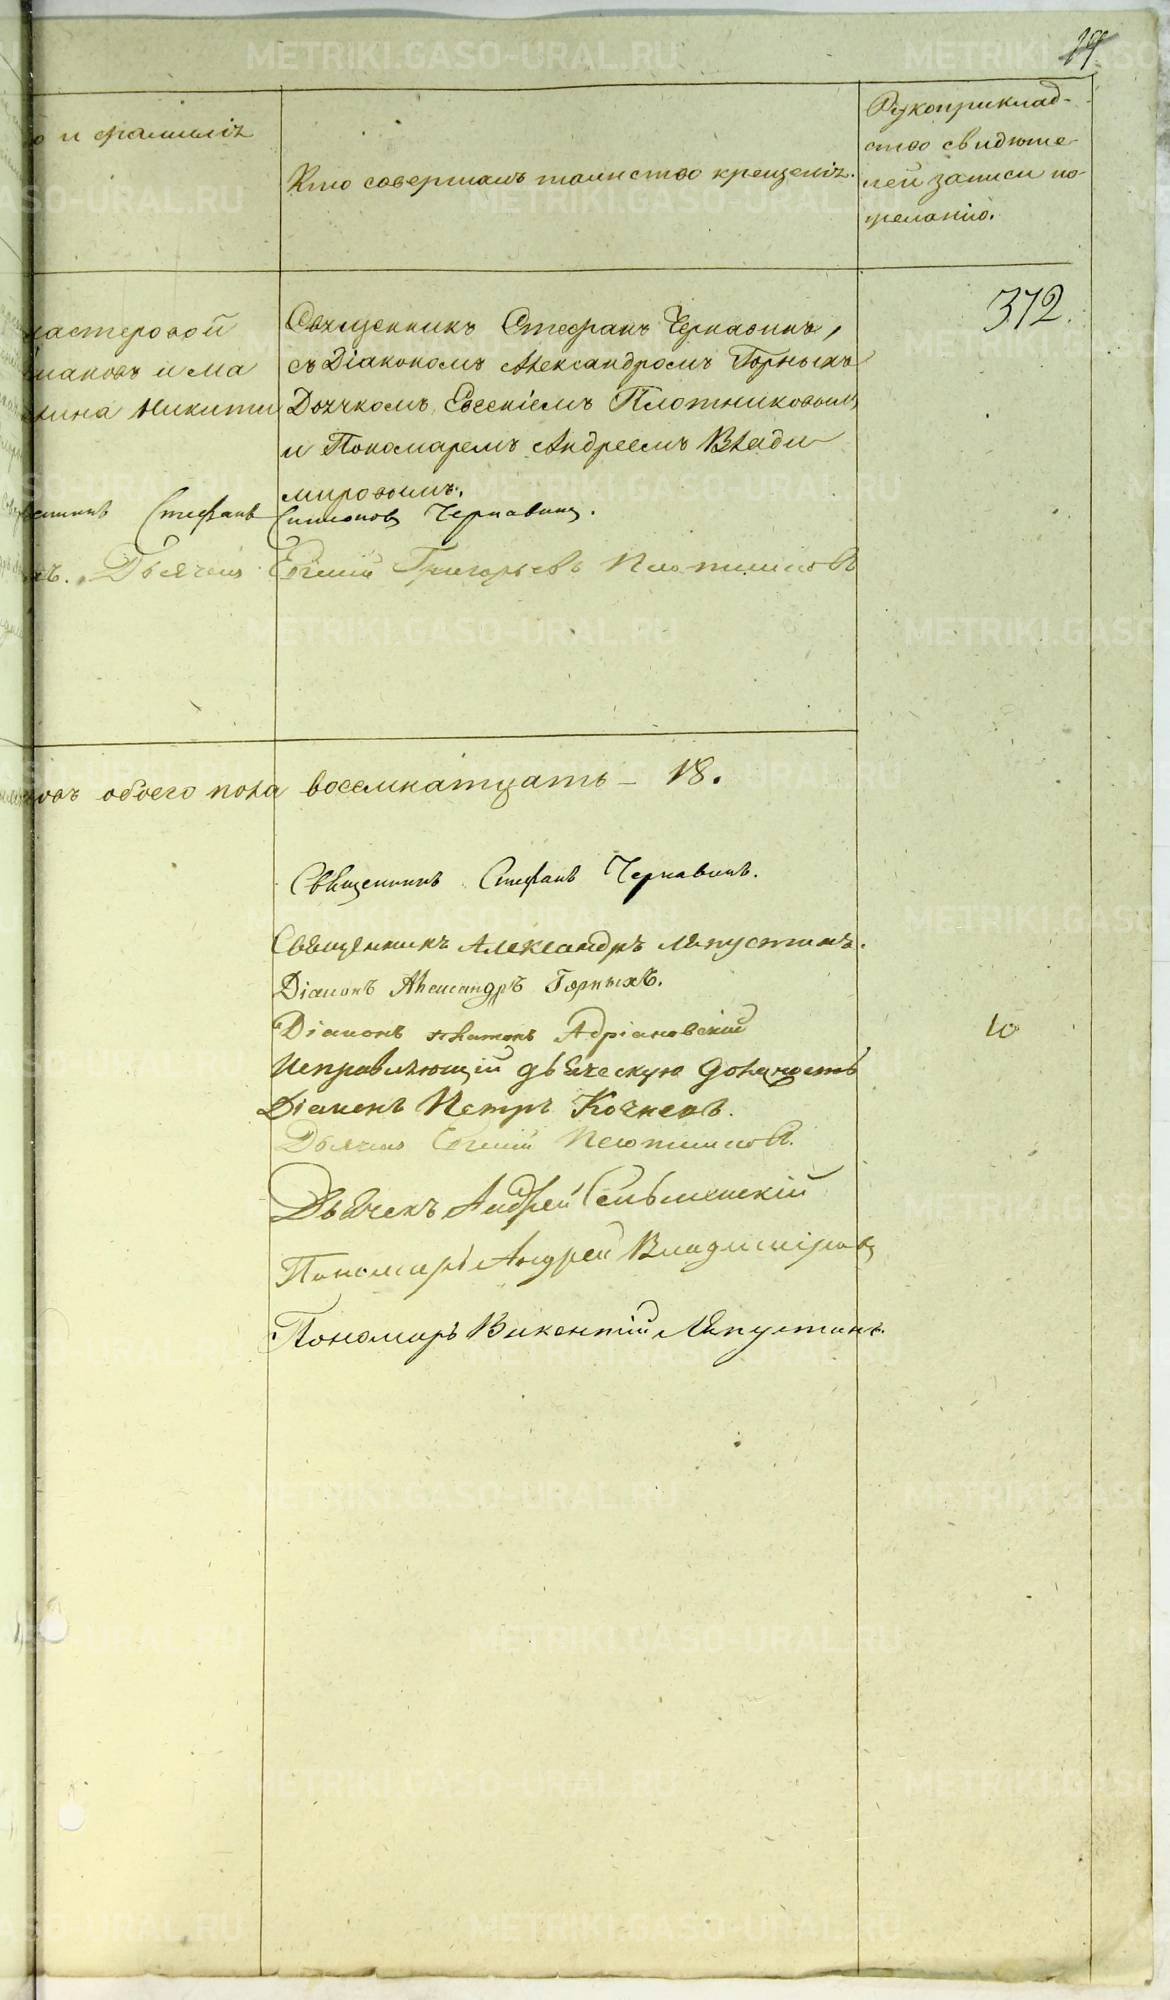 19
о и фамилія
Кто совершалъ таинство крещенія.
Рукоприклад-
ство свидѣте
лей записи по
желанію.
372.
мастеровой
Священникъ Стефанъ Чернавинъ,
и ма
съ Діакономъ Александромъ Горныхъ
Никити
Дьячкомъ Евгеніемъ Плотниковымъ
и Пономаремъ Андреемъ Влади
мировымъ.
Стефанъ Симоновъ Чернавинъ.
Дьячекъ Евгеній Григорьевъ Плотниковъ
обоего пола восемнатцать – 18.
Священникъ Стефанъ Чернавинъ.
Священникъ Александръ Ляпустинъ.
Діаконъ Александръ Горныхъ.
Діаконъ Платонъ Адріановскій
10
Исправляющій дьяческую должность
Діаконъ Петръ Кочневъ.
Дьячекъ Евгеній Плотниковъ.
Дьячекъ Андрей
Пономарь Андрей Владиміровъ
Пономарь Викентій Ляпустинъ.
METRIKI.GASO-URAL.RU